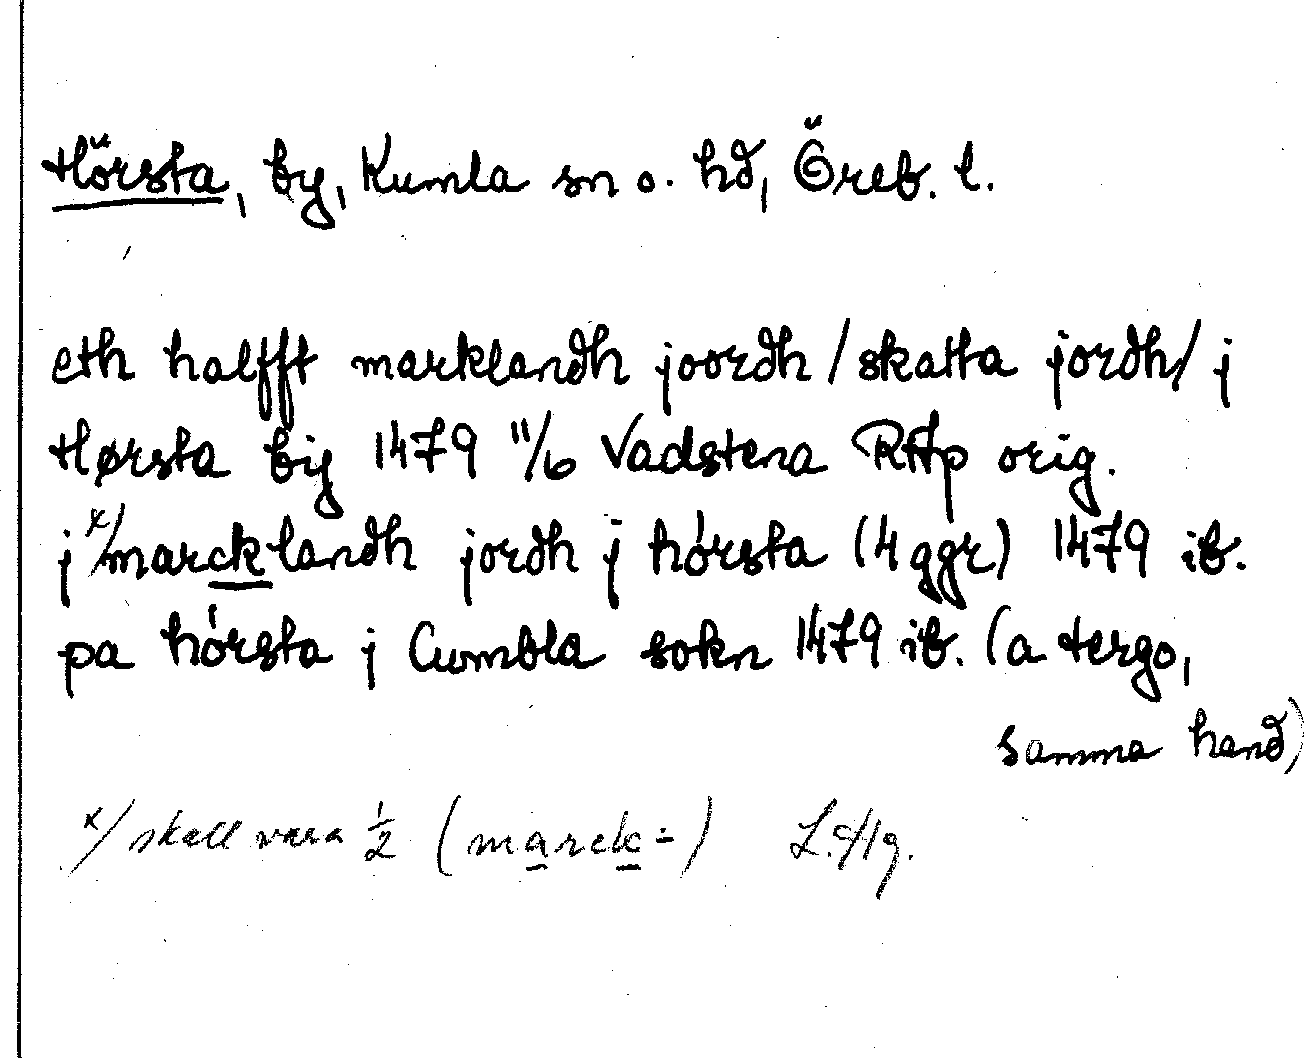 Hörsta, by, Kumla sn o. hd, Öreb. l.
eth halfft marklandh joordh /skatta jordh/ j
Hørsta bij 1479 11/6 Vadstena RAp orig.
j x/marcklandh jordh j hórsta (4 ggr) 1479 ib.
pa hórsta j Cumbla sokn 1479 ib. (a tergo,
samma hand)
x/ skall vara 1/2 (marck=) L.Hg.